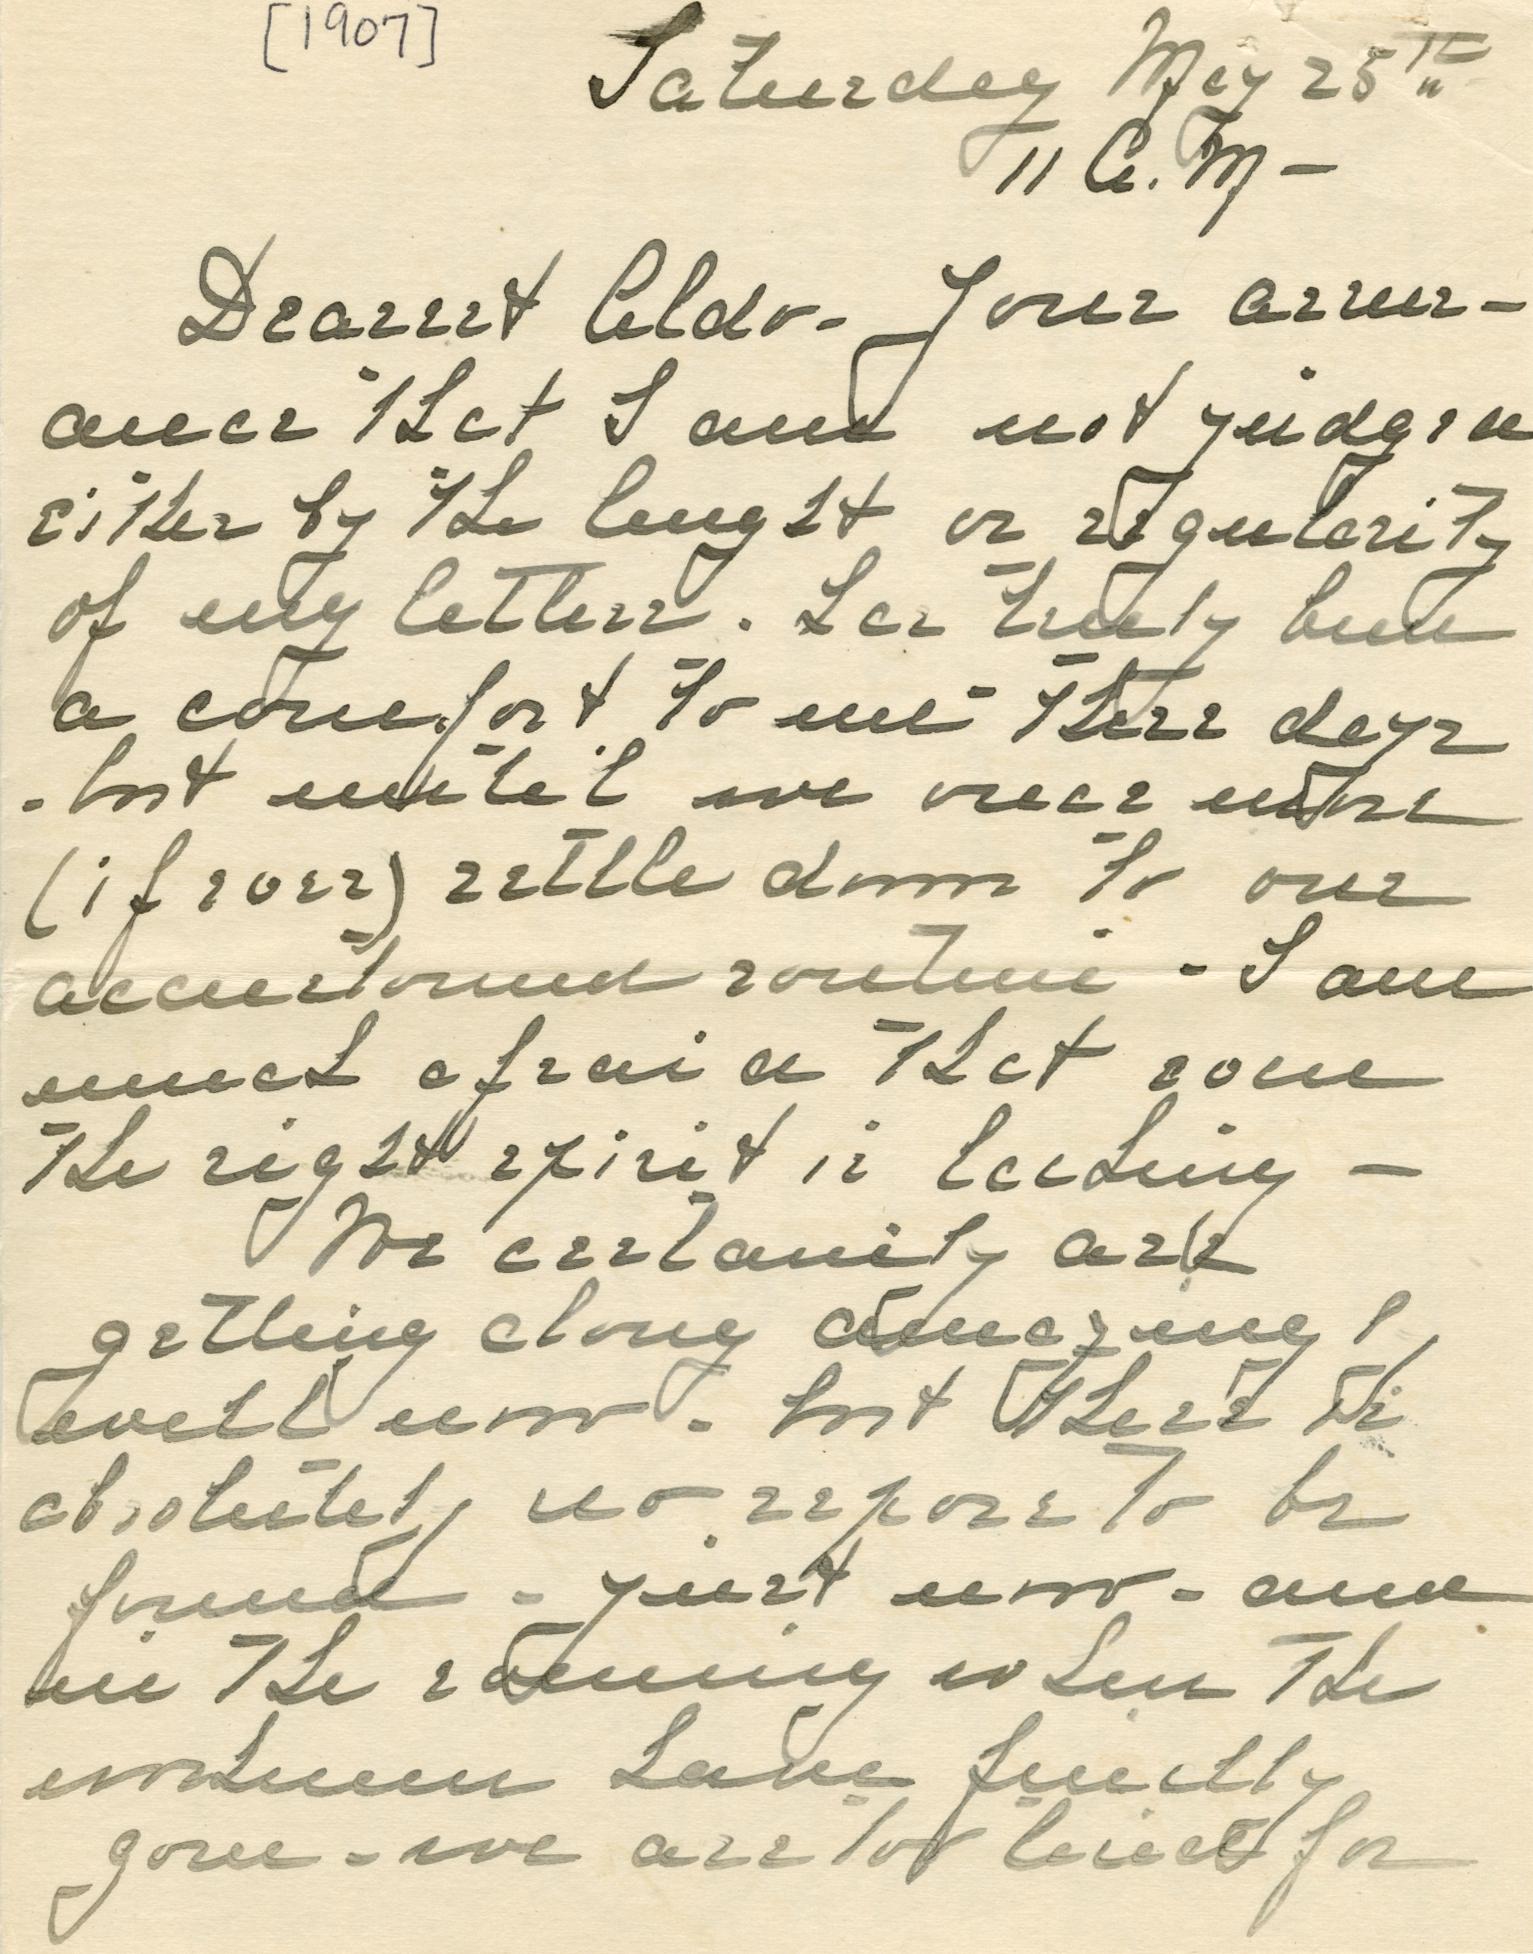 [1907]
Saturday May 25th
11 A.M -
Dearest Aldo - Your assur-
ance that I am not judged
either by the lenght or regularity
of my letters. has truely been
a comfort to me these days
- but until we once more
(if ever) settle down to our
accustomed routine - I am
much afraid that some
the right spirit is lacking -
We certainly are
getting along amazingly
well now - but there is
absolutely no repose to be
found - just now - and
in the evening when the
workmen have finally
gone - we are too tired for